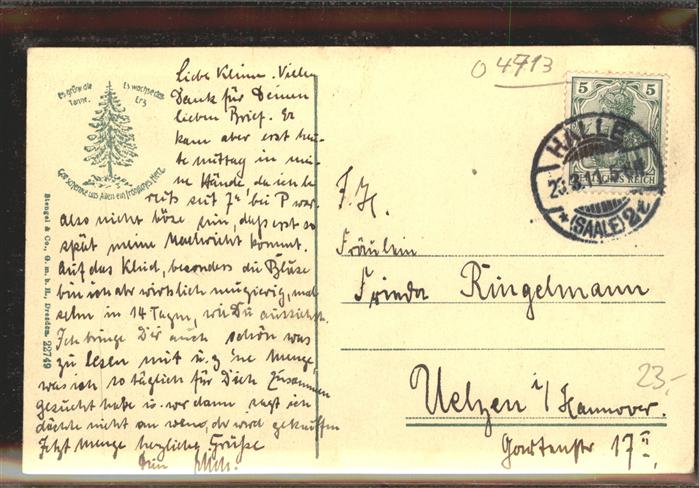 Es grüne die Tanne. Es wachse das Erz
Gott schenke uns Allen ein fröhliches Herz.
Stengel & Co., G. m. b. H., Dresden 22749
Liebe Kleine. Vielen
Dank für Deinen
lieben Brief. Er
kam aber erst heu-
te mittag in mei-
ne Hände, da ich be-
reits seit 7 bei P war.
also nicht böse sein, daß erst so
spät meine Nachricht kommt.
Auf das Kleid, besonders die Bluse
bin ich aber wirklich neugierig, mal
sehn in 14 Tagen, wie Du aussiehst.
Ich bringe Dir auch schön was
zu lesen mit u. z. 'ne Menge,
was ich so täglich für Dich zusammen
gesucht habe u. wer dann sagt ich
dächte nicht an wen, der wird gekniffen
Jetzt Menge herzliche Grüße
Dein
0 4713
5 5
DEUTSCHES REICH
HALLE
(SAALE) 2
F. H.
Fräulein
Frieda Ringelmann
Uelzen i/ Hannover.
Gartenstr 17 II
23,-